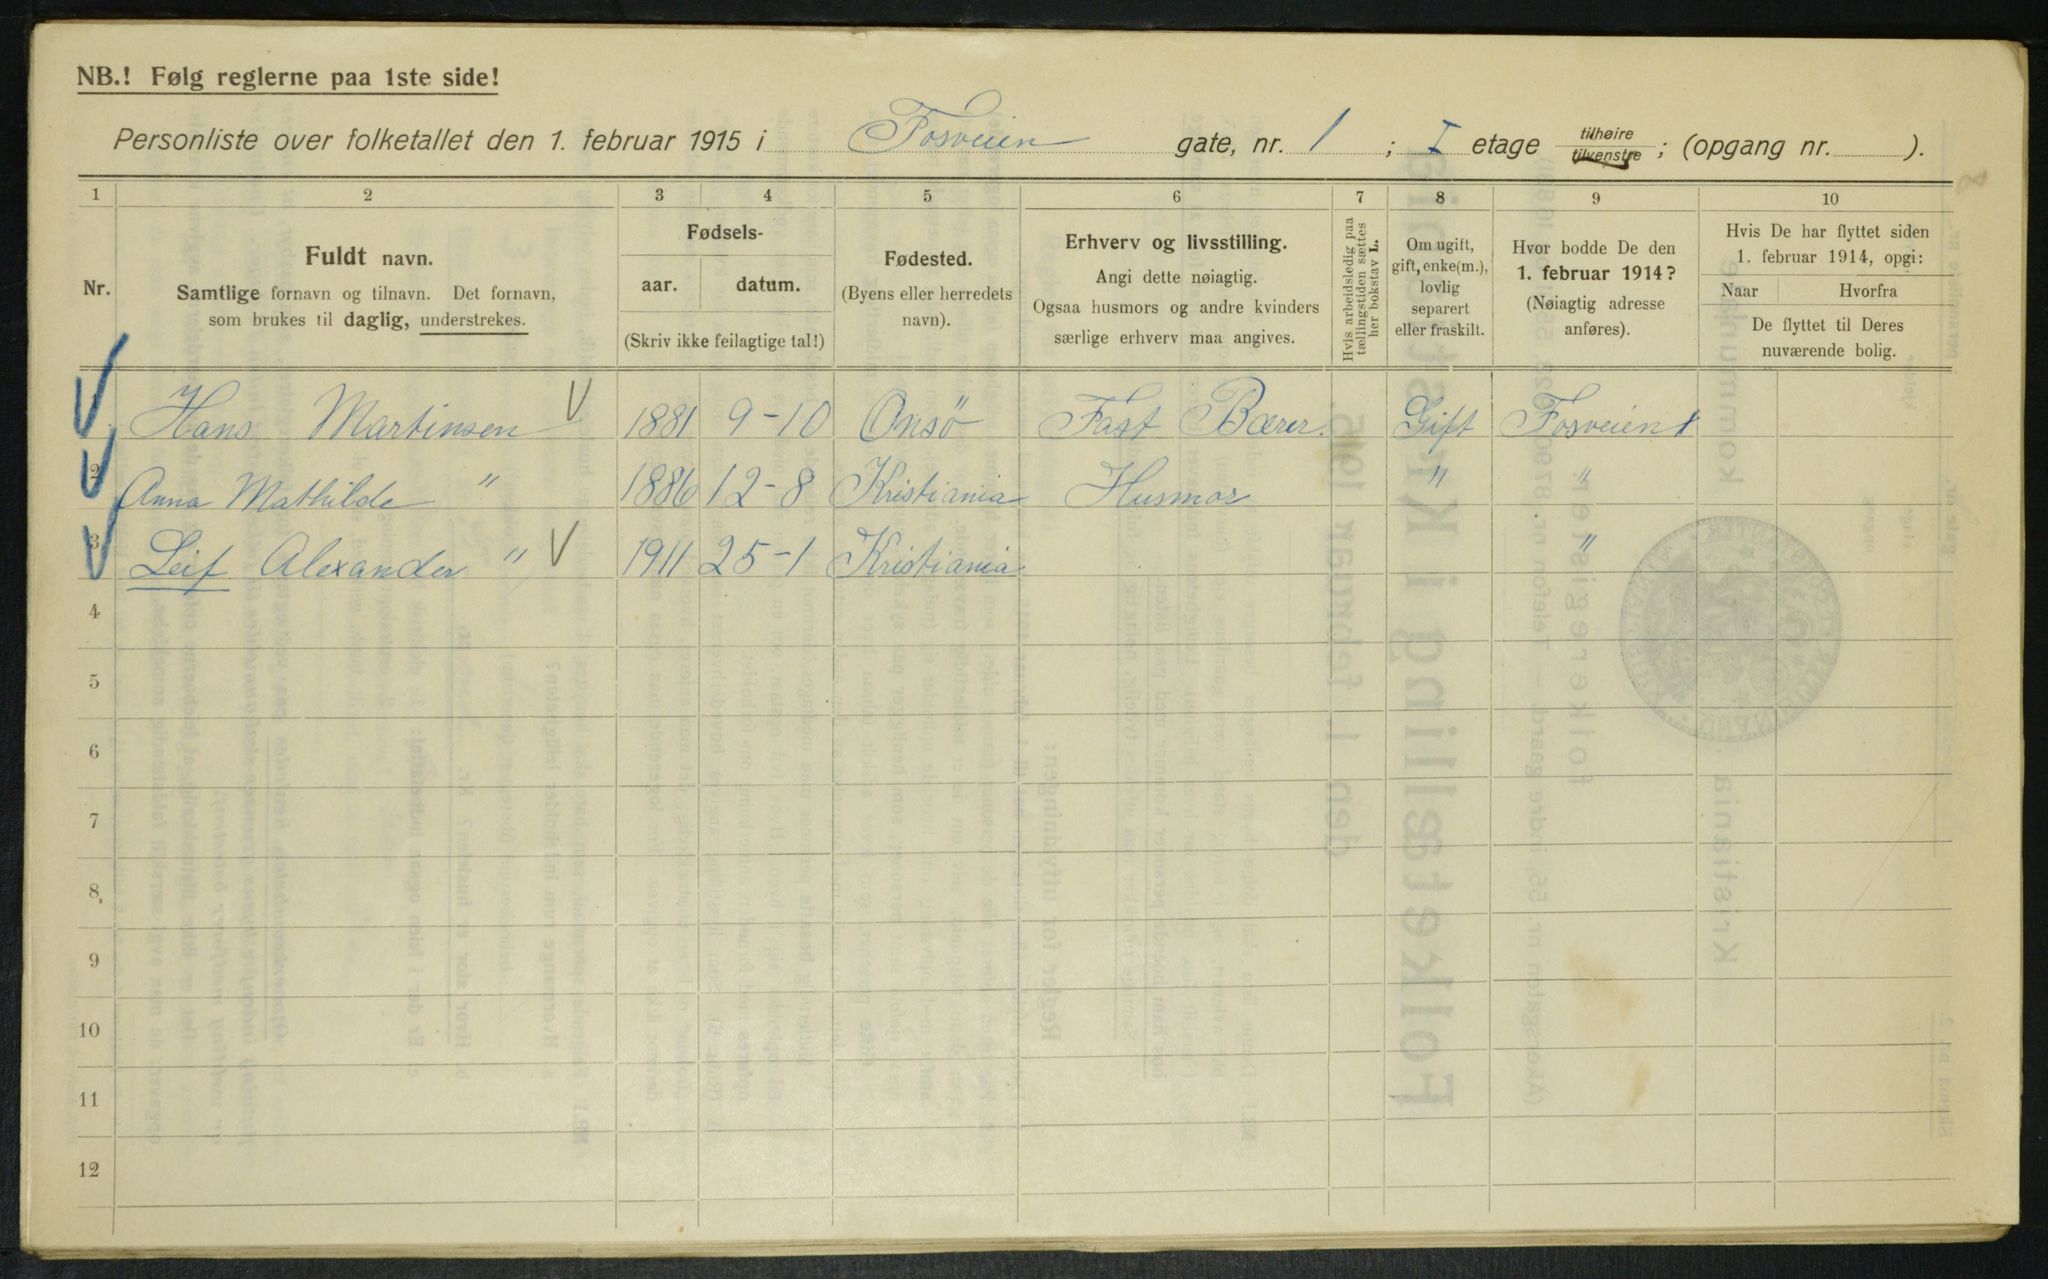 NB.! Følg reglerne paa 1ste side!
Personliste over folketallet den 1. februar 1915 i Fosveien gate, nr. 1 ; I etage tilhøire tilvenstre ; (opgang nr. ).
1 2 3 4 5 6 7 8 9 10
Nr.
Fuldt navn.
Samtlige fornavn og tilnavn. Det fornavn,
som brukes til daglig, understrekes.
Fødsels-
aar. datum.
(Skriv ikke feilagtige tal!)
Fødested.
(Byens eller herredets
navn).
Erhverv og livsstilling.
Angi dette nøiagtig.
Ogsaa husmors og andre kvinders
særlige erhverv maa angives.
Hvis arbeidsledig paa
tællingstiden sættes
her bokstav L.
Om ugift,
gift, enke(m.),
lovlig
separert
eller fraskilt.
Hvor bodde De den
1. februar 1914?
(Nøiagtig adresse
anføres).
Hvis De har flyttet siden
1. februar 1914, opgi:
Naar Hvorfra
De flyttet til Deres
nuværende bolig.
Hans Martinsen 1881 9-10 Onsö Fast Bærer. Gift Fosveien 1
2 Anna Mathilde " 1886 12-8 Kristiania Husmor " "
3 Leif Alexander " 1911 25-1 Kristiania "
4
5
6
7
8
9
10
11
12